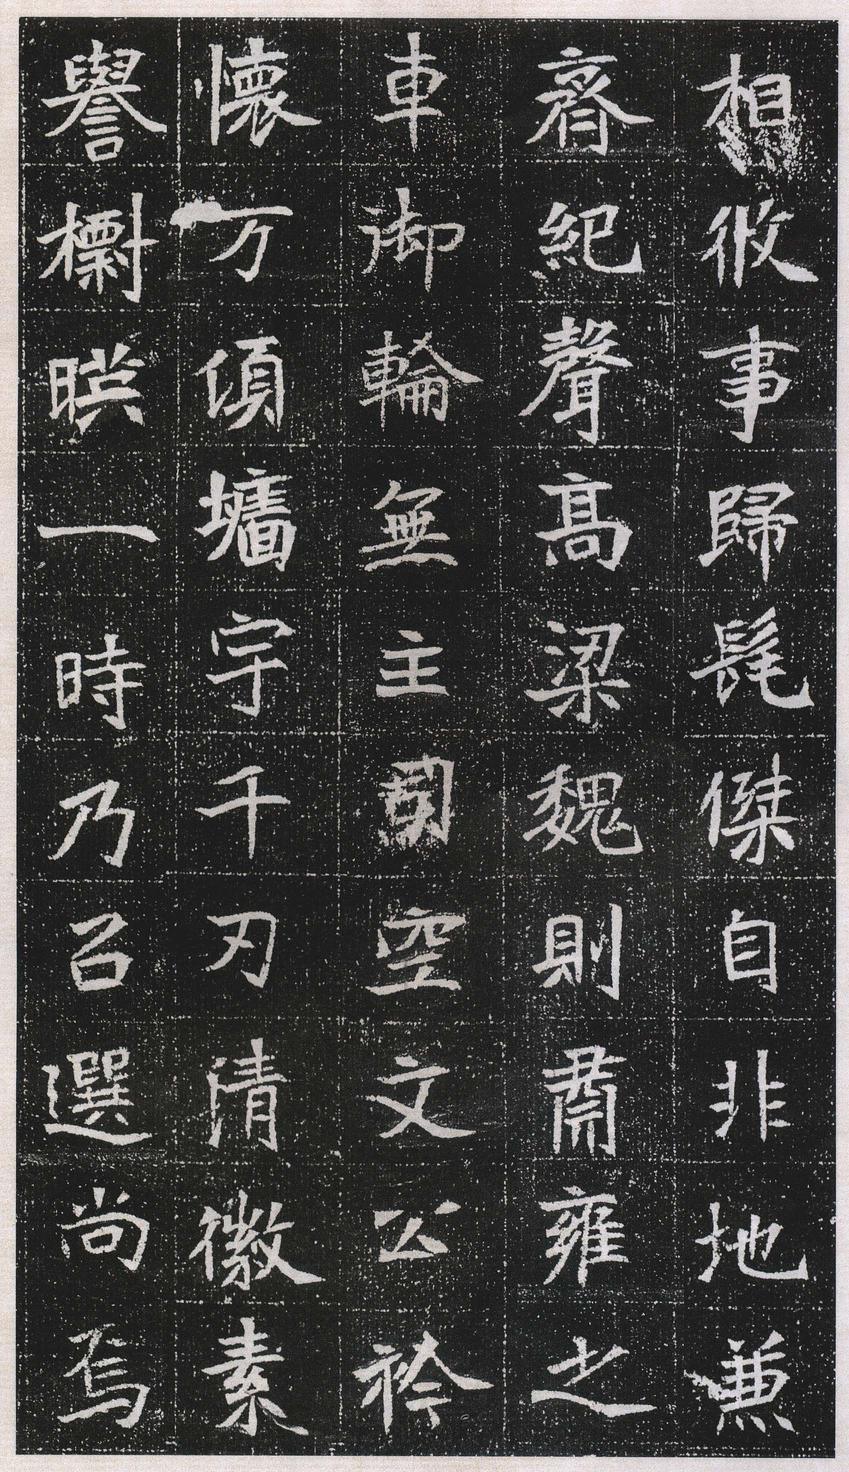 相攸事歸髦傑自非地兼
齊紀聲高梁魏則肅雍之
車御輪無主司空文公衿
懷万頃墻宇千刃清徽素
譽檦暎一時乃召選尚焉